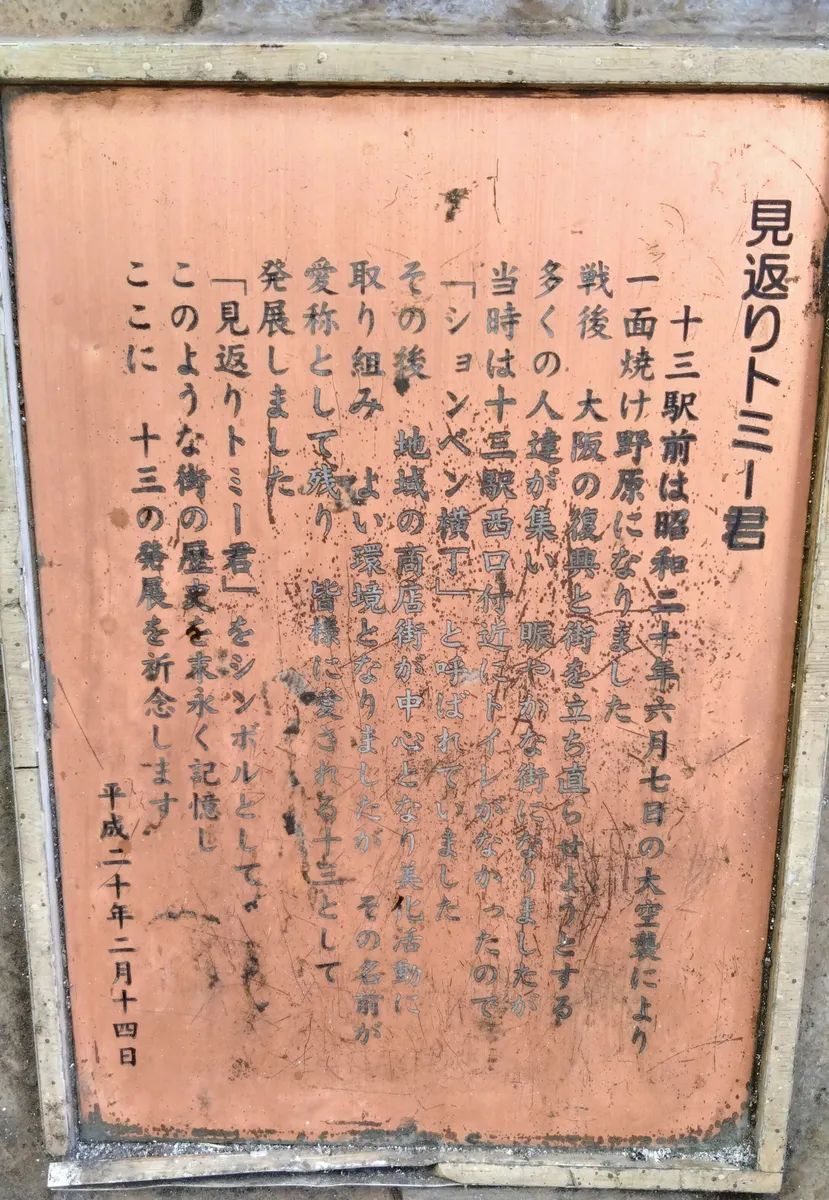 見返りトミー君
十三駅前は昭和二十年六月七日の大空襲により
一面焼け野原になりました
戦後 大阪の復興と街を立ち直らせようとする
多くの人達が集い 賑やかな街になりましたが
当時は十三駅西口付近にトイレがなかったので
「ションベン横丁」と呼ばれていました
その後 地域の商店街が中心となり美化活動に
取り組み よい環境となりましたが その名前が
愛称として残り 皆様に愛される十三として
発展しました
「見返りトミー君」をシンボルとして
このような街の歴史を末永く記憶し
ここに 十三の発展を祈念します
平成二十年二月十四日